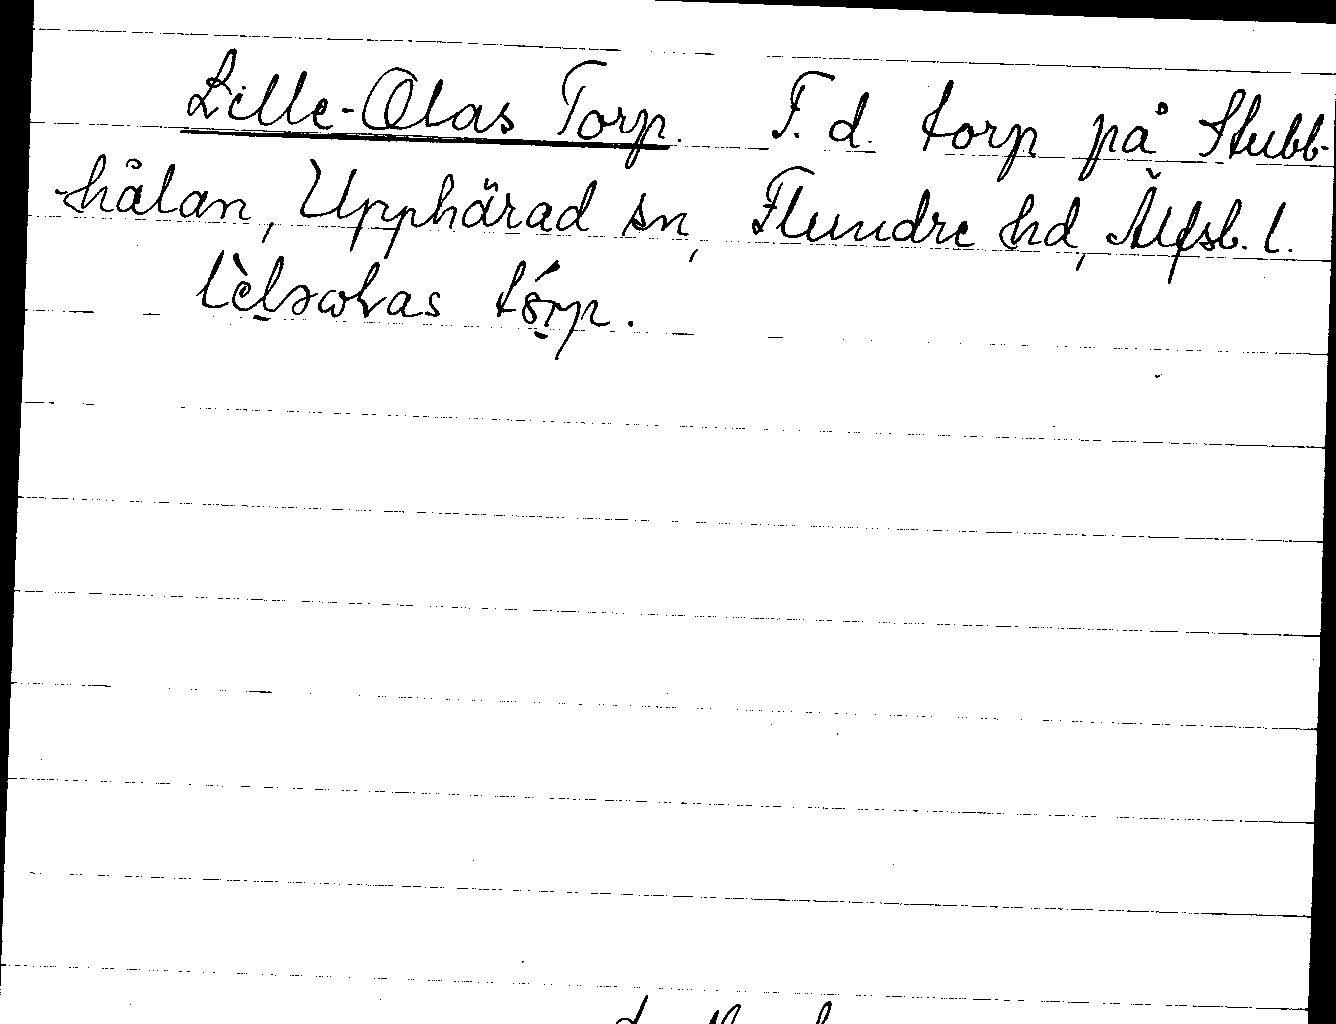 Lille-Olas Torp. F. d. torp på Stubb-
hålan, Upphärad sn, Flundre hd, Älfsb. l.
tórp.